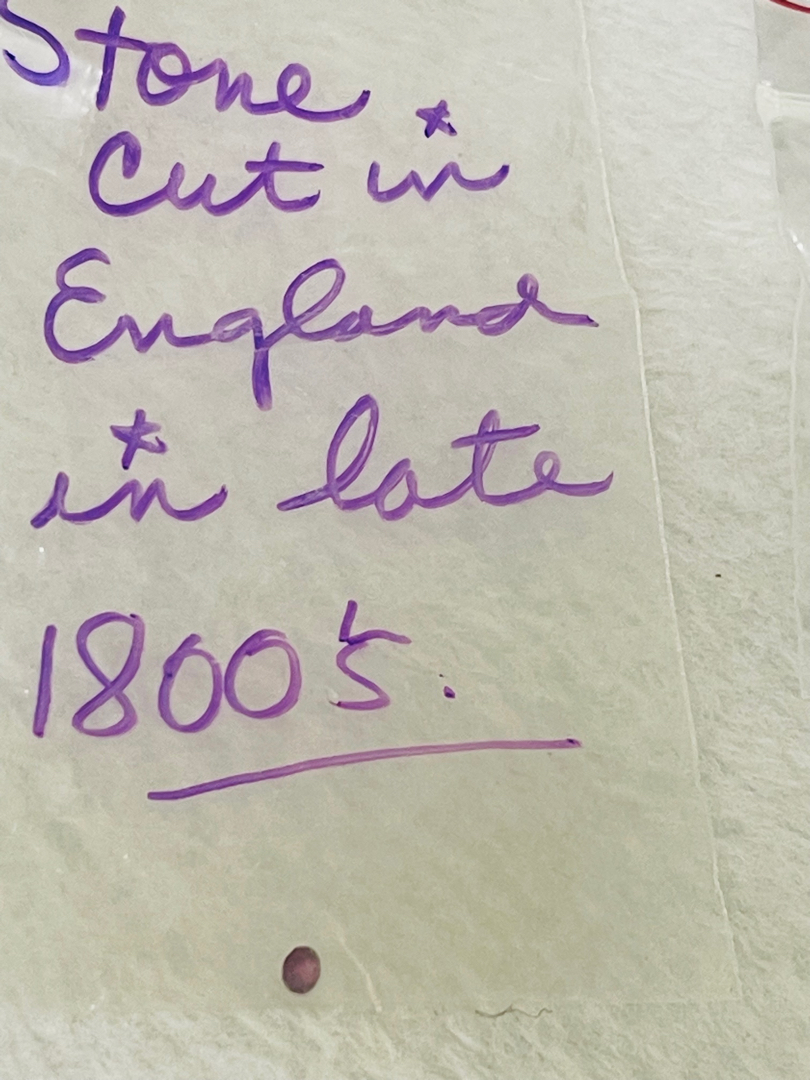 Stone
Cut in
England
in late
1800's.